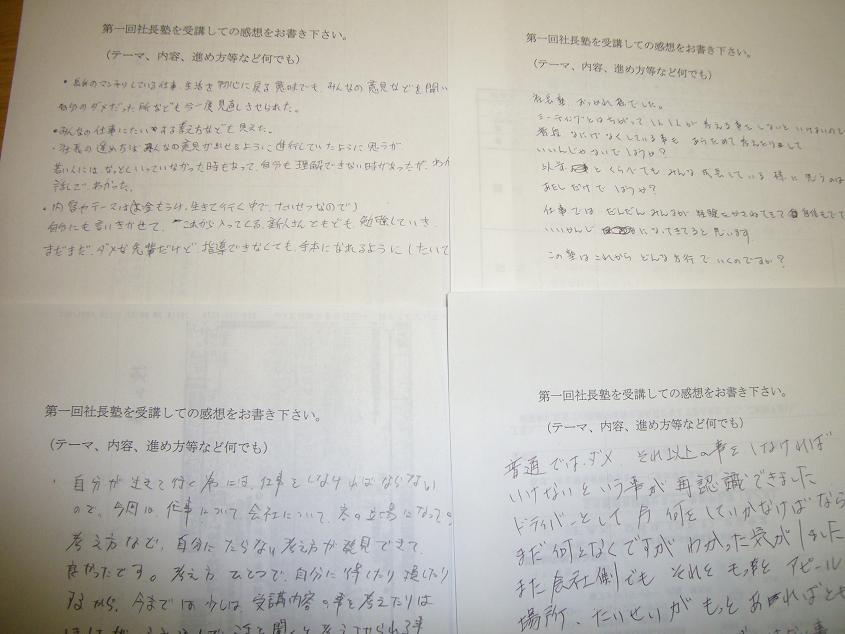 第一回社長塾を受講しての感想をお書き下さい。
（テーマ、内容、進め方等など何でも）
・長年のマンネリしている仕事、生活を初心に戻る意味でも、みんなの意見などを聞い
自分のダメだった所なども今一度見直しさせられた。
・みんなの仕事にたいする考え方なども見えた。
・社長の進め方は、みんなの意見が出せるように進行していたように思うが
若い人には、なっとくいっていなかった時もあって、自分も理解できない時があったが、
話して、わかった。
・内容やテーマは お金もうけ、生きて行く中で、たいせつなので
自分にも言いきかせて、これから入ってくる、新人さんともども、勉強していき
まだまだ、ダメな先輩だけど、指導できなくても、手本になれるようにしたいで
第一回社長塾を受講しての感想をお書き下さい。
（テーマ、内容、進め方等など何でも）
社長塾 おつかれ様でした。
ミーティングとはちがって 1人1人が 考える事をしないといけないので
普段 なにげなくしている事を あらためて考えたりして
いいんじゃないでしょうか？
以前 とくらべても みんな 成長している 様に思うのは
あたしだけで しょうか？
仕事では だんだん みんなが 経験をかさねてきて 自信もでて
いいかんじ になってきてると思います。
この塾は これから どんな方行で いくのですか？
第一回社長塾を受講しての感想をお書き下さい。
（テーマ、内容、進め方等など何でも）
・自分が生きて行く為には、仕事をしなければならない
ので、今回は、仕事について、会社について、客の立場になっての
考え方など、自分にたらない考え方が発見できて、
良かったです。考え方 ひとつで、自分に得したり 損したり
するから、今までは 少しは、受講内容の事を考えたりは
第一回社長塾を受講しての感想をお書き下さい。
（テーマ、内容、進め方等など何でも）
普通では、ダメ、それ以上の事をしなければ
いけないという事が 再認識できました
ドライバーとして 今 何をしていかなければなら
まだ何となくですが わかった気がしました
また 会社側でも それを もっと アピール
場所、たいせいが もっと あればとも